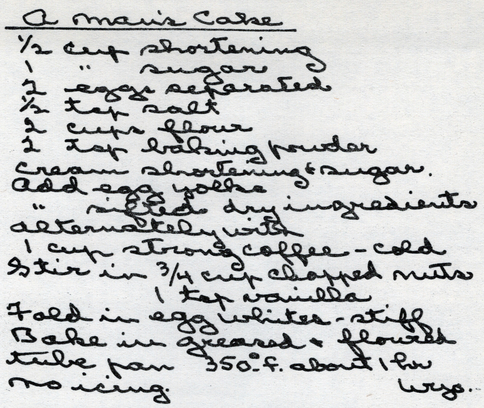 A Man's Cake
1/2 cup shortening
1 " sugar
2 eggs separated
1/2 tsp salt
2 cups flour
2 tsp baking powder
Cream shortening & sugar.
Add egg yolks
" sifted dry ingredients
alternately with
1 cup strong coffee - cold
Stir in 3/4 cup chopped nuts
1 tsp vanilla
Fold in egg whites - stiff
Bake in greased & floured
tube pan 350° f. about 1 hr
no icing. Wyo.